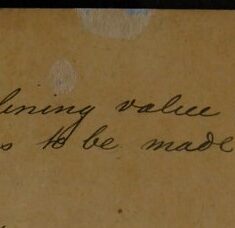 lening value
s to be made